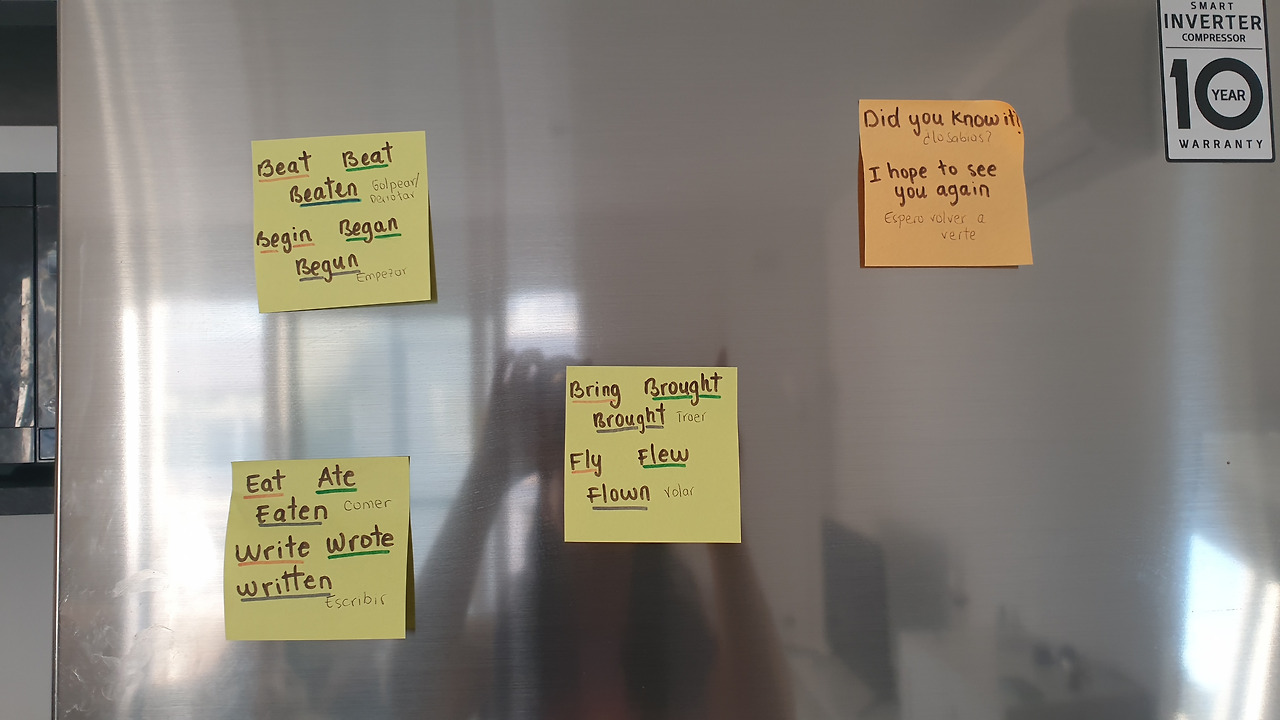 Beat Beat
Beaten Golpear/
Derrotar
Begin Began
Begun Empezar
Did you know it?
¿Lo sabias?
I hope to see
you again
Espero volver a
verte
SMART
INVERTER
COMPRESSOR
10 YEAR
WARRANTY
Bring Brought
Brought Traer
Fly Flew
Flown Volar
Eat Ate
Eaten Comer
Write Wrote
Written
Escribir